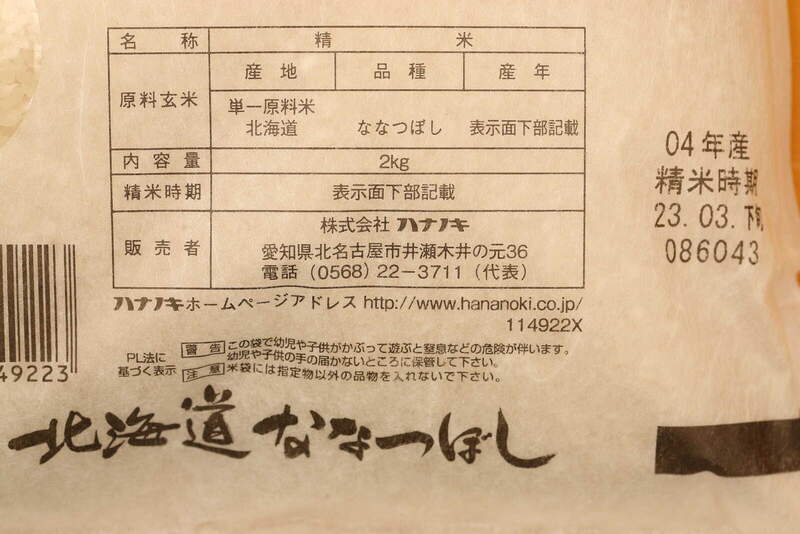 名称 精米
産地 品種 産年
原料玄米
単一原料米
北海道 ななつぼし 表示面下部記載
内容量 2kg
精米時期 表示面下部記載
販売者
株式会社 ハナノキ
愛知県北名古屋市井瀬木井の元36
電話 (0568) 22-3711 (代表)
ハナノキホームページアドレス http://www.hananoki.co.jp/
114922X
PL法に
基づく表示
警告 この袋で幼児や子供がかぶって遊ぶと窒息などの危険が伴います。
幼児や子供の手の届かないところに保管して下さい。
注意 米袋には指定物以外の品物を入れないで下さい。
49223
北海道ななつぼし
04年産
精米時期
23.03.下旬
086043